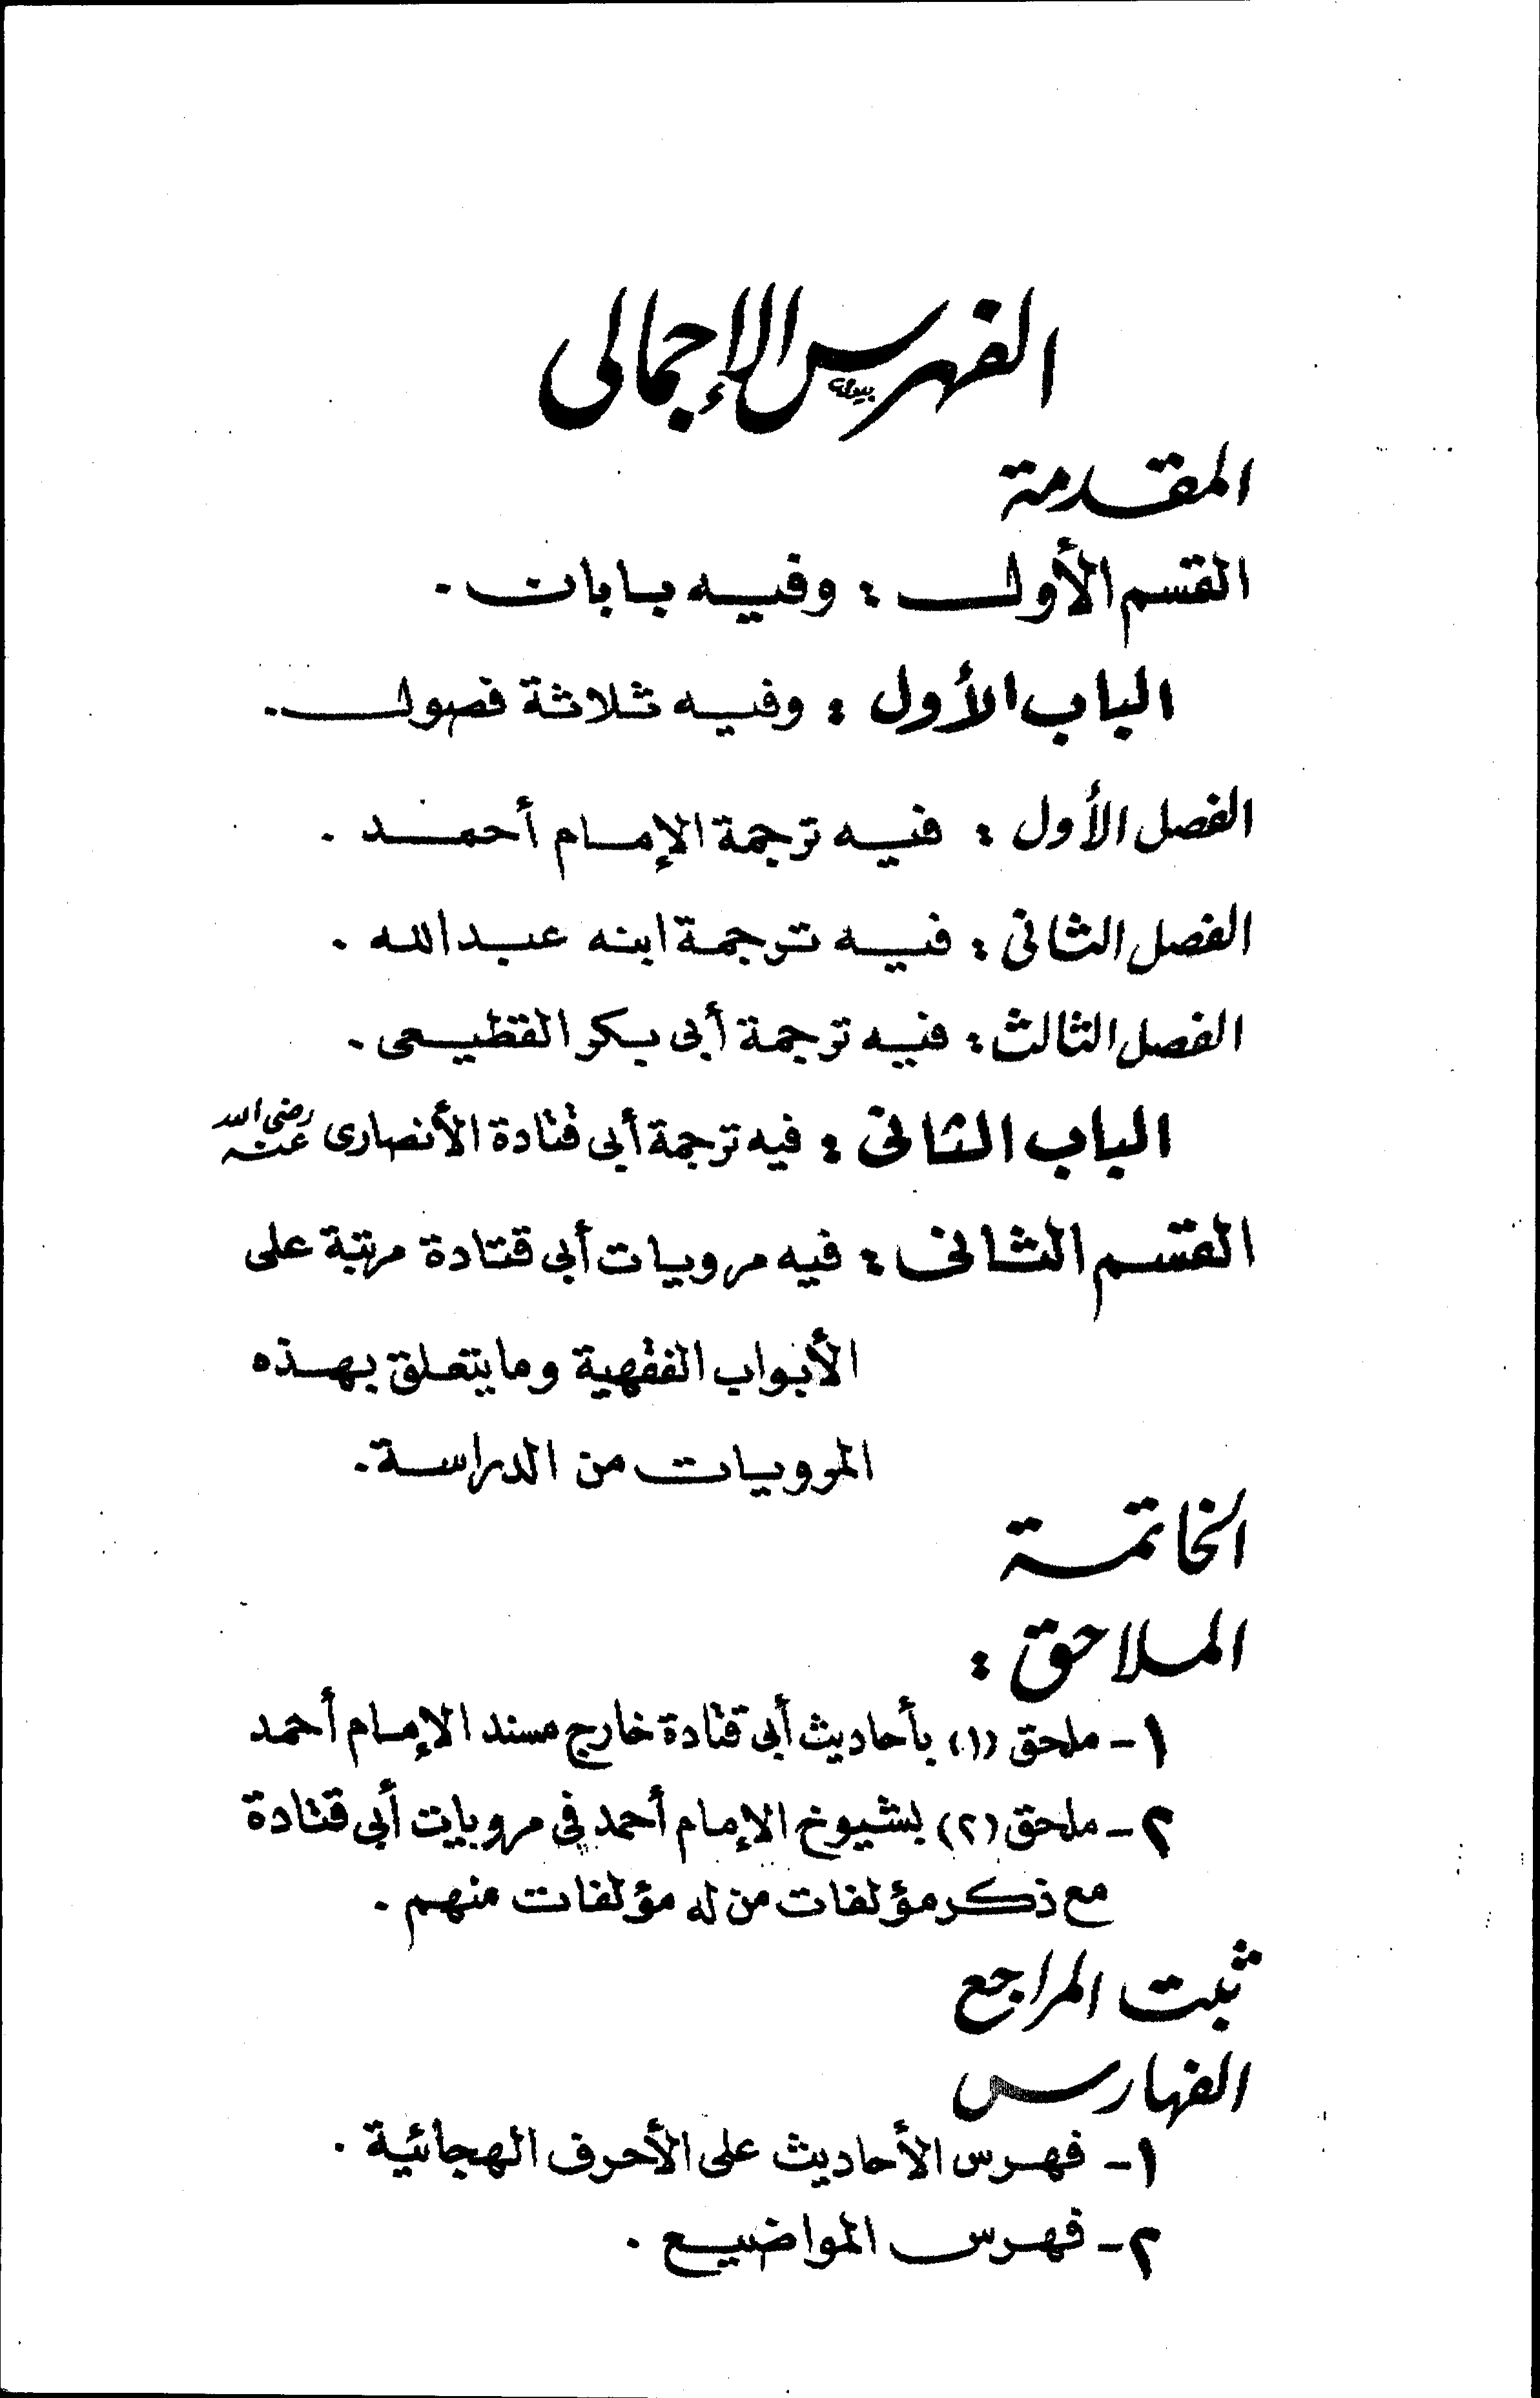 الفهرس الإجمالى
المقدمة
القسم الأول : وفيه بابان .
الباب الأول : وفيه ثلاثة فصول .
الفصل الأول : فيه ترجمة الإمام أحمد .
الفصل الثانى : فيه ترجمة ابنه عبدالله .
الفصل الثالث : فيه ترجمة أبى بكر القطيعى .
الباب الثانى : فيه ترجمة أبى قتادة الأنصارى رضى الله عنه
القسم الثانى : فيه مرويات أبى قتادة مرتبة على
الأبواب الفقهية وما يتعلق بهذه
المرويات من الدراسة .
الخاتمة
الملاحق :
١ - ملحق (١) بأحاديث أبى قتادة خارج مسند الإمام أحمد
٢ - ملحق (٢) بشيوخ الإمام أحمد في مرويات أبى قتادة
مع ذكر مؤلفات من له مؤلفات منهم .
ثبت المراجع
الفهارس
١ - فهرس الأحاديث على الأحرف الهجائية .
٢ - فهرس المواضيع .